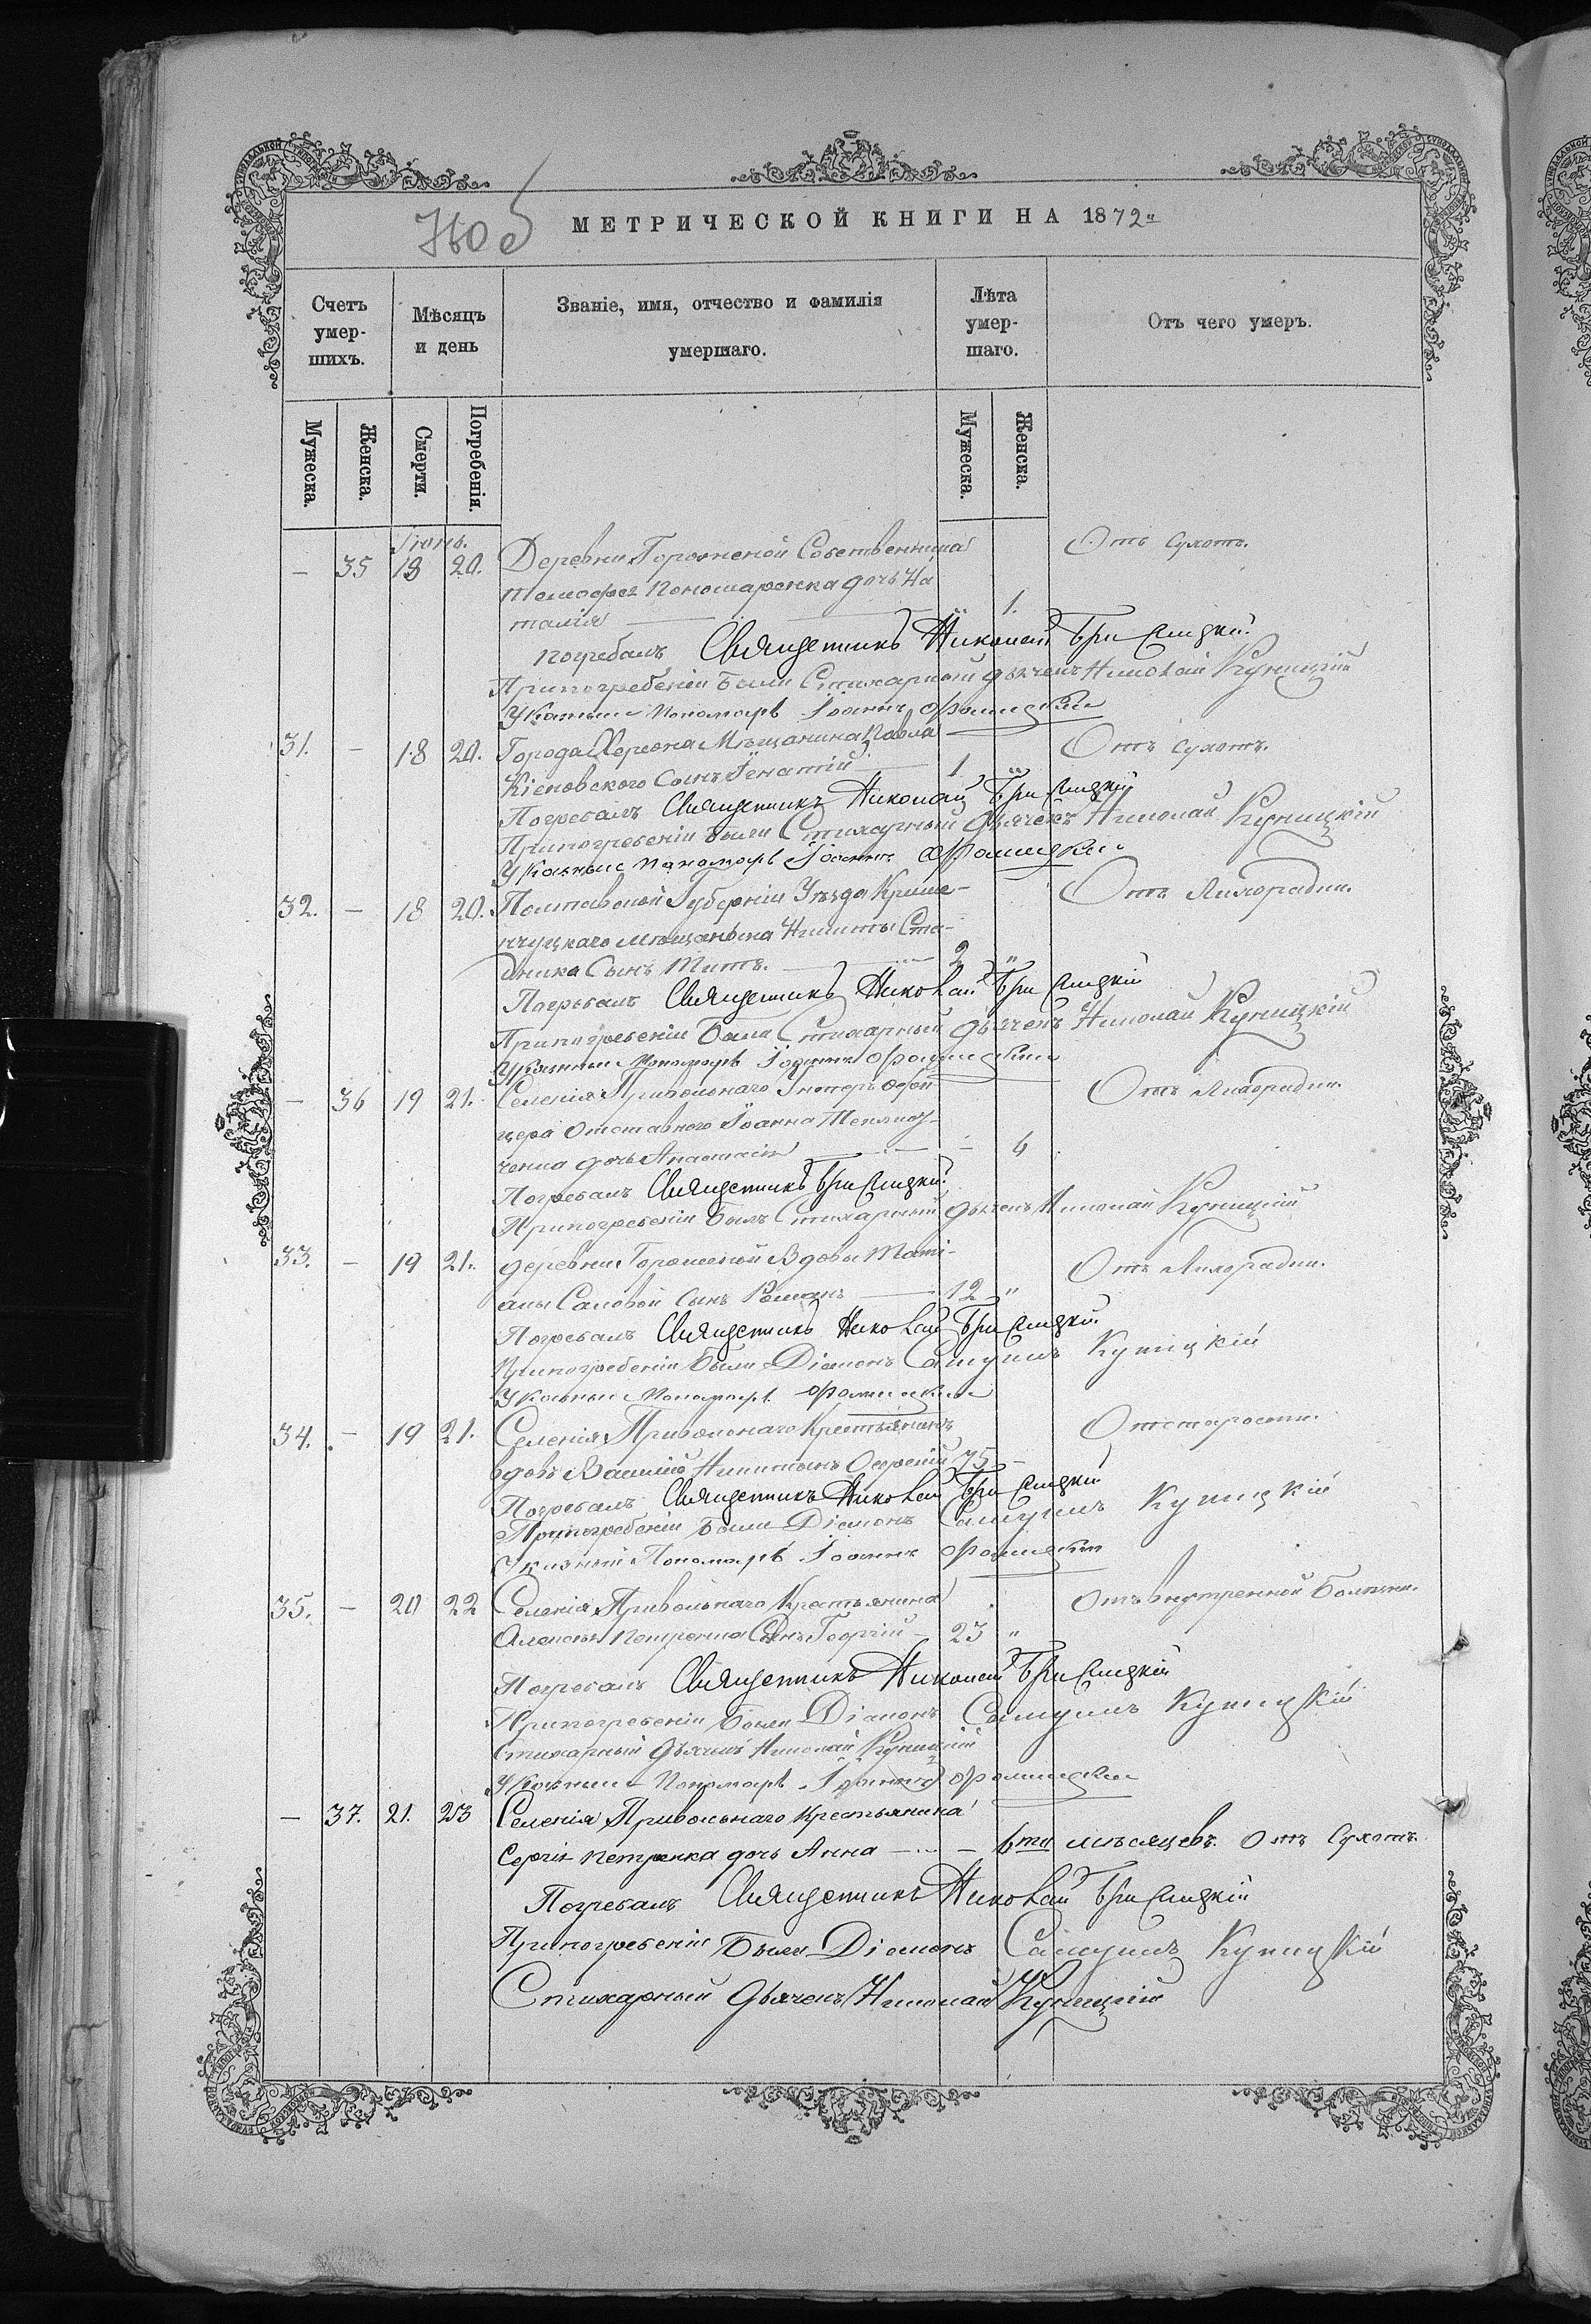 МЕТРИЧЕСКОЙ КНИГИ НА 1872
Счетъ умер- шихъ.
Мѣсяцъ и день
Званіе, имя, отчество и фамилія умершаго.
Лѣта умер- шаго.
Отъ чего умеръ.
Мужеска. Женска. Смерти. Погребенія. Мужеска. Женска.
Іюнь.
— 35 18 20. Деревни Гороженой Собственника Отъ сухотъ.
Пономаренка дочь На
талія 1.
погребалъ Священникъ Николай
Припогребеніи были Стихарный дьячекъ Николай Куницкій
Указный Пономарь Іоаннъ
31. — 18 20. Города Херсона Мѣщанина Павла Отъ сухотъ.
Сынъ Игнатій 1 "
Погребалъ Священникъ Николай
Припогребеніи были Стихарный дьячекъ Николай Куницкій
Указный пономарь Іоаннъ
32. — 18 20. Полтавской Губерніи Уѣзда Креме- Отъ Лихорадки.
нчуцкаго мѣщанина Никиты
Сынъ Титъ. 2 "
Погребалъ Священникъ Николай
Припогребеніи были Стихарный дьячекъ Николай Куницкій
Указный Пономарь Іоаннъ
— 36 19 21. Селенія Привольнаго Унтеръ Офи Отъ Лихорадки.
цера Отставного Іоанна
дочь Анастасія — 6
Погребалъ Священникъ
Припогребеніи былъ Стихарный дьячекъ Николай Куницкій
33. — 19 21. деревни Гороженой Вдовы Тати- Отъ Лихорадки.
аны сынъ Романъ 12 "
Погребалъ Священникъ Николай
Припогребеніи были Діаконъ Самуилъ Куницкій
Указный Пономарь
34. — 19 21. Селенія Привольнаго Крестьянинъ Отстарости.
вдовъ Василій Никитинъ 75 —
Погребалъ Священникъ Николай
Припогребеніи были Діаконъ Самуилъ Куницкій
Указный Пономарь Іоаннъ
35. — 20 22 Селенія Привольнаго Крестьянина Отъ внутренной Болѣзни.
Петренка Сынъ Георгій — 23 "
Погребалъ Священникъ Николай
Припогребеніи были Діаконъ Самуилъ Куницкій
Стихарный дьячекъ Николай Куницкій
Указный Пономарь Іоаннъ
— 37. 21. 23 Селенія Привольнаго Крестьянина
Сергія петренка дочь Анна — 6ти мѣсяцевъ. Отъ Сухотъ.
Погребалъ Священникъ Николай
Припогребеніи были Діаконъ Самуилъ Куницкій
Стихарный Дьячекъ Николай Куницкій